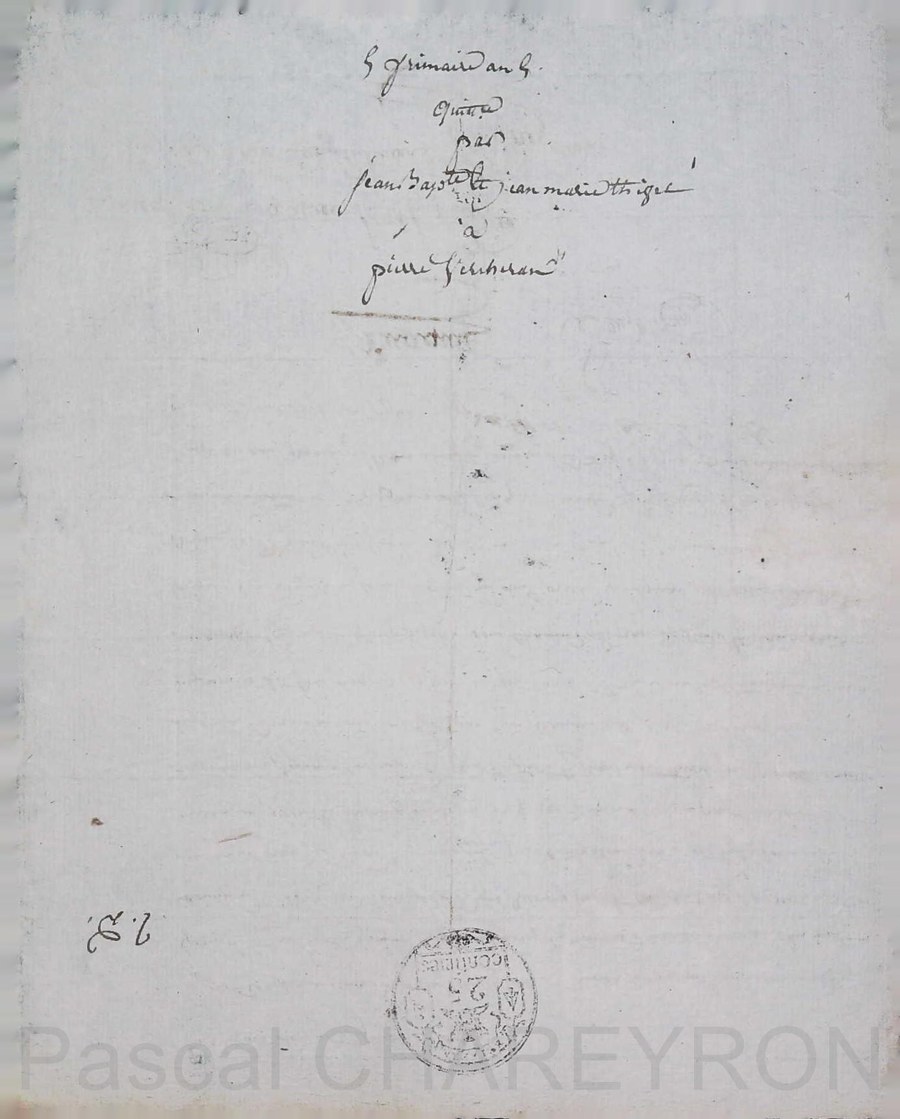 5 frimaire an 5.
quitte
par
jean Bapte et jean marie thiget
à
pierre Vercheran
25
centimes
Pascal CHAREYRON